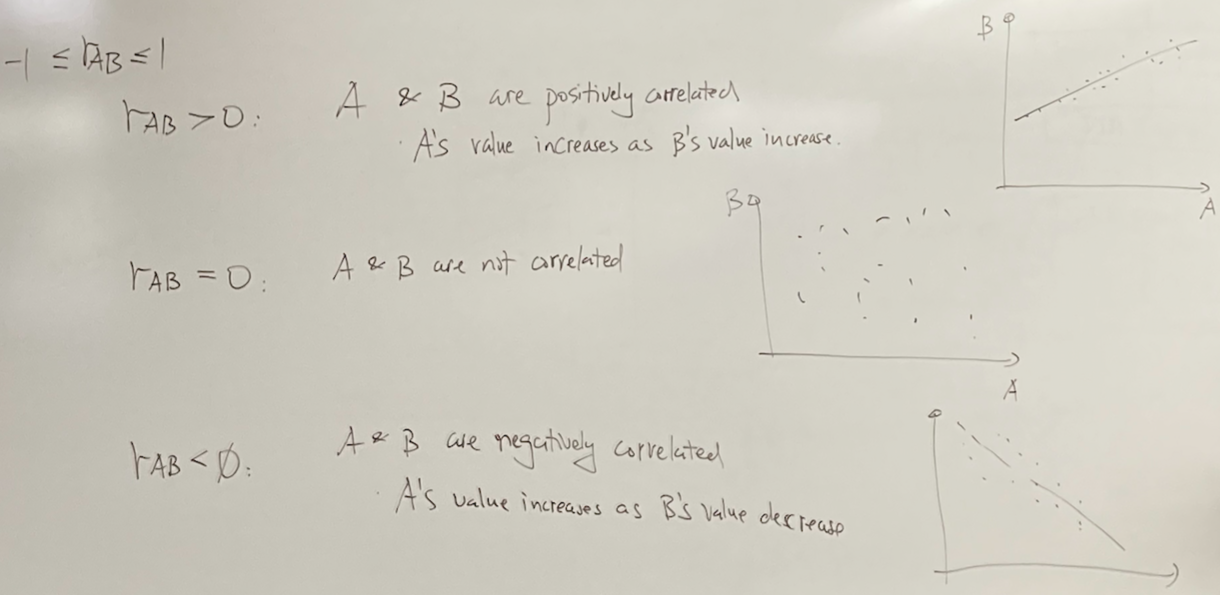 -1 ≤ rAB ≤ 1
rAB > 0: A & B are positively correlated
· A's value increases as B's value increase.
B
A
rAB = 0: A & B are not correlated
B
A
rAB < ∅: A & B are negatively correlated
· A's value increases as B's value decrease